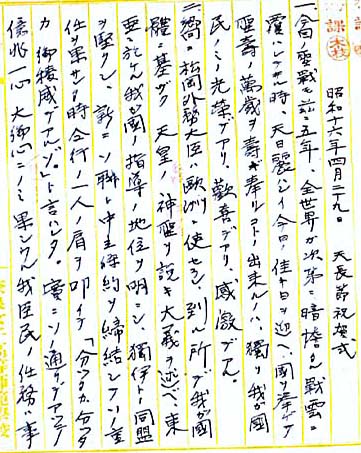 昭和十六年四月二十九日　天長節祝賀式
一、今日ノ聖戦モ茲ニ五年、全世界ガ次第ニ暗憺タル戦雲ニ
覆ハレテ居ル時、天日麗ハシイ今日ノ佳キ日ヲ迎ヘ、国ヲ挙ゲテ
聖寿ノ萬歳ヲ寿ギ奉ルコトノ出来ルノハ、獨リ我ガ国
民ノミノ光栄デアリ、歓喜デアリ、感激デアル。
二、嚮ニ松岡外務大臣ハ欧洲ニ使セラレ、到ル所デ我ガ國
體ニ基ヅク　天皇ノ神聖ヲ説キ大義ヲ述ベ、東
亜ニ於ケル我ガ國ノ指導ノ地位ヲ明ニシ、獨伊トノ同盟
ヲ堅クシ、新ニソ聯ト中立條約ヲ締結シソノ重
任ヲ果サル時一行ノ一人ノ肩ヲ叩イテ「分ツタカ、分ツタ
カ　御稜威デアルゾ」ト言ハレタ。実ニソノ通リデアツテ
億兆一心　大御心ニノミ果シウル我臣民ノ任務ハ事